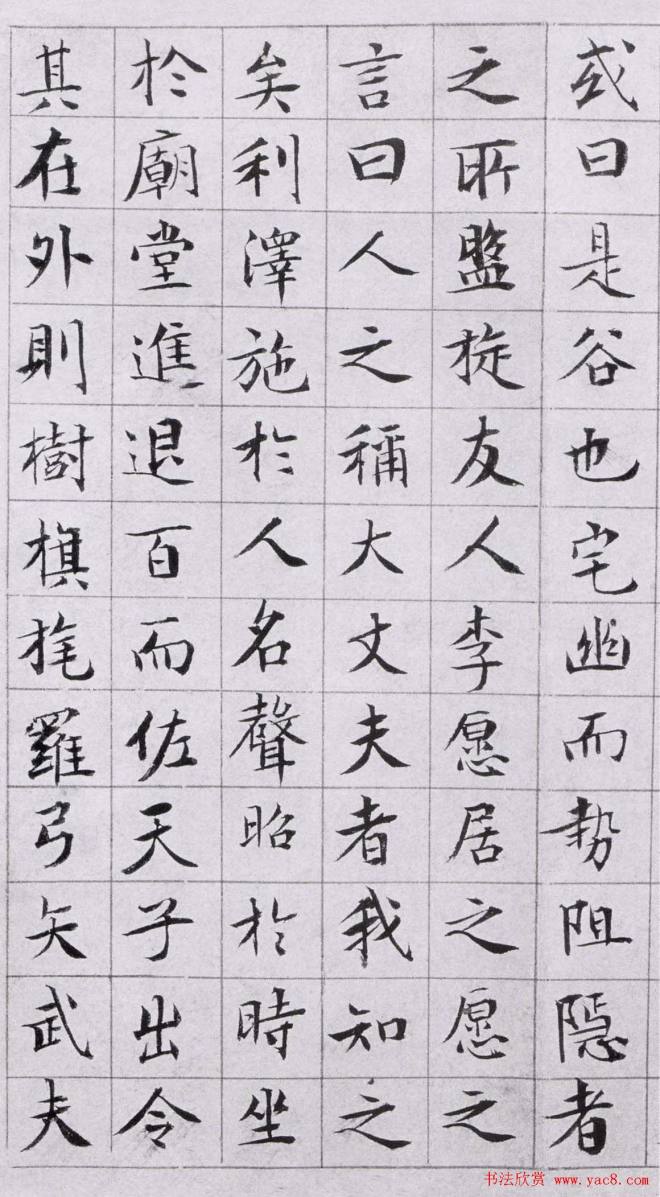 或曰是谷也宅幽而勢阻隱者
之所盤旋友人李愿居之愿之
言曰人之稱大丈夫者我知之
矣利澤施於人名聲昭於時坐
於廟堂進退百而佐天子出令
其在外則樹旗旄羅弓矢武夫
书法欣赏 www.yac8.com